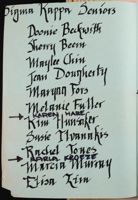 Sigma Kappa Seniors
Doonie Beckwith
Sherry Beem
Maylee Chin
Jean Dougherty
Maryan Fors
Melanie Fuller
KAREN HARE
Kim Hunsaker
Susie Ivanakis
Rachel Jones
KEOZE
Marcia Murray
Elisa Kim